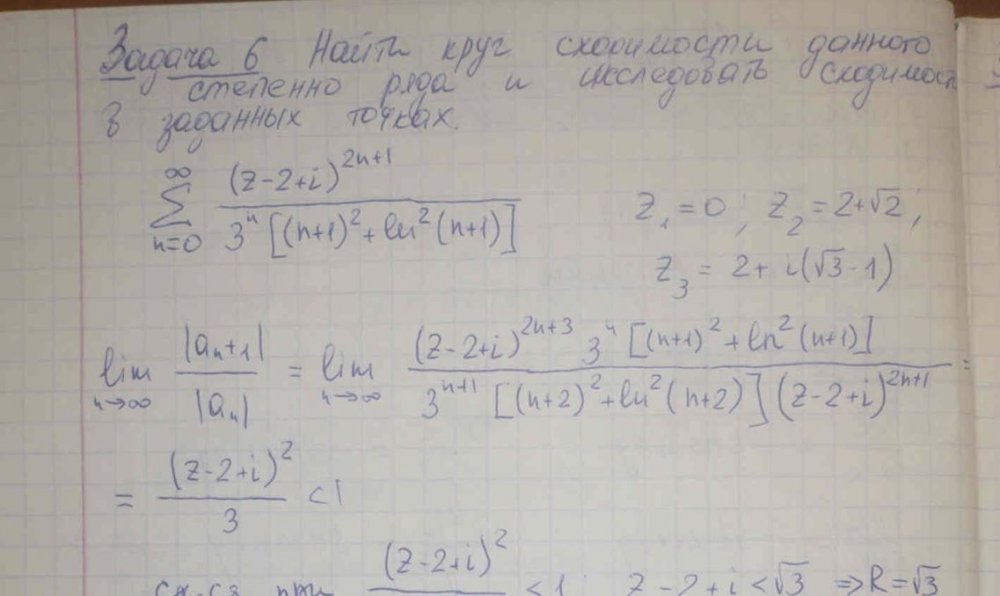 Задача 6 Найти круг сходимости данного
степенно ряда и исследовать сходимост
в заданных точках.
∑_{n=0}^{∞} (z-2+i)^{2n+1} / 3^n [(n+1)^2 + ln^2(n+1)]   z_1 = 0; z_2 = 2+√2;
z_3 = 2 + i(√3-1)
lim_{n→∞} |a_{n+1}| / |a_n| = lim_{n→∞} (z-2+i)^{2n+3} 3^n [(n+1)^2 + ln^2(n+1)] / 3^{n+1} [(n+2)^2 + ln^2(n+2)] (z-2+i)^{2n+1} =
= (z-2+i)^2 / 3 < 1
(z-2+i)^2 < 1   z-2+i < √3 ⇒ R = √3